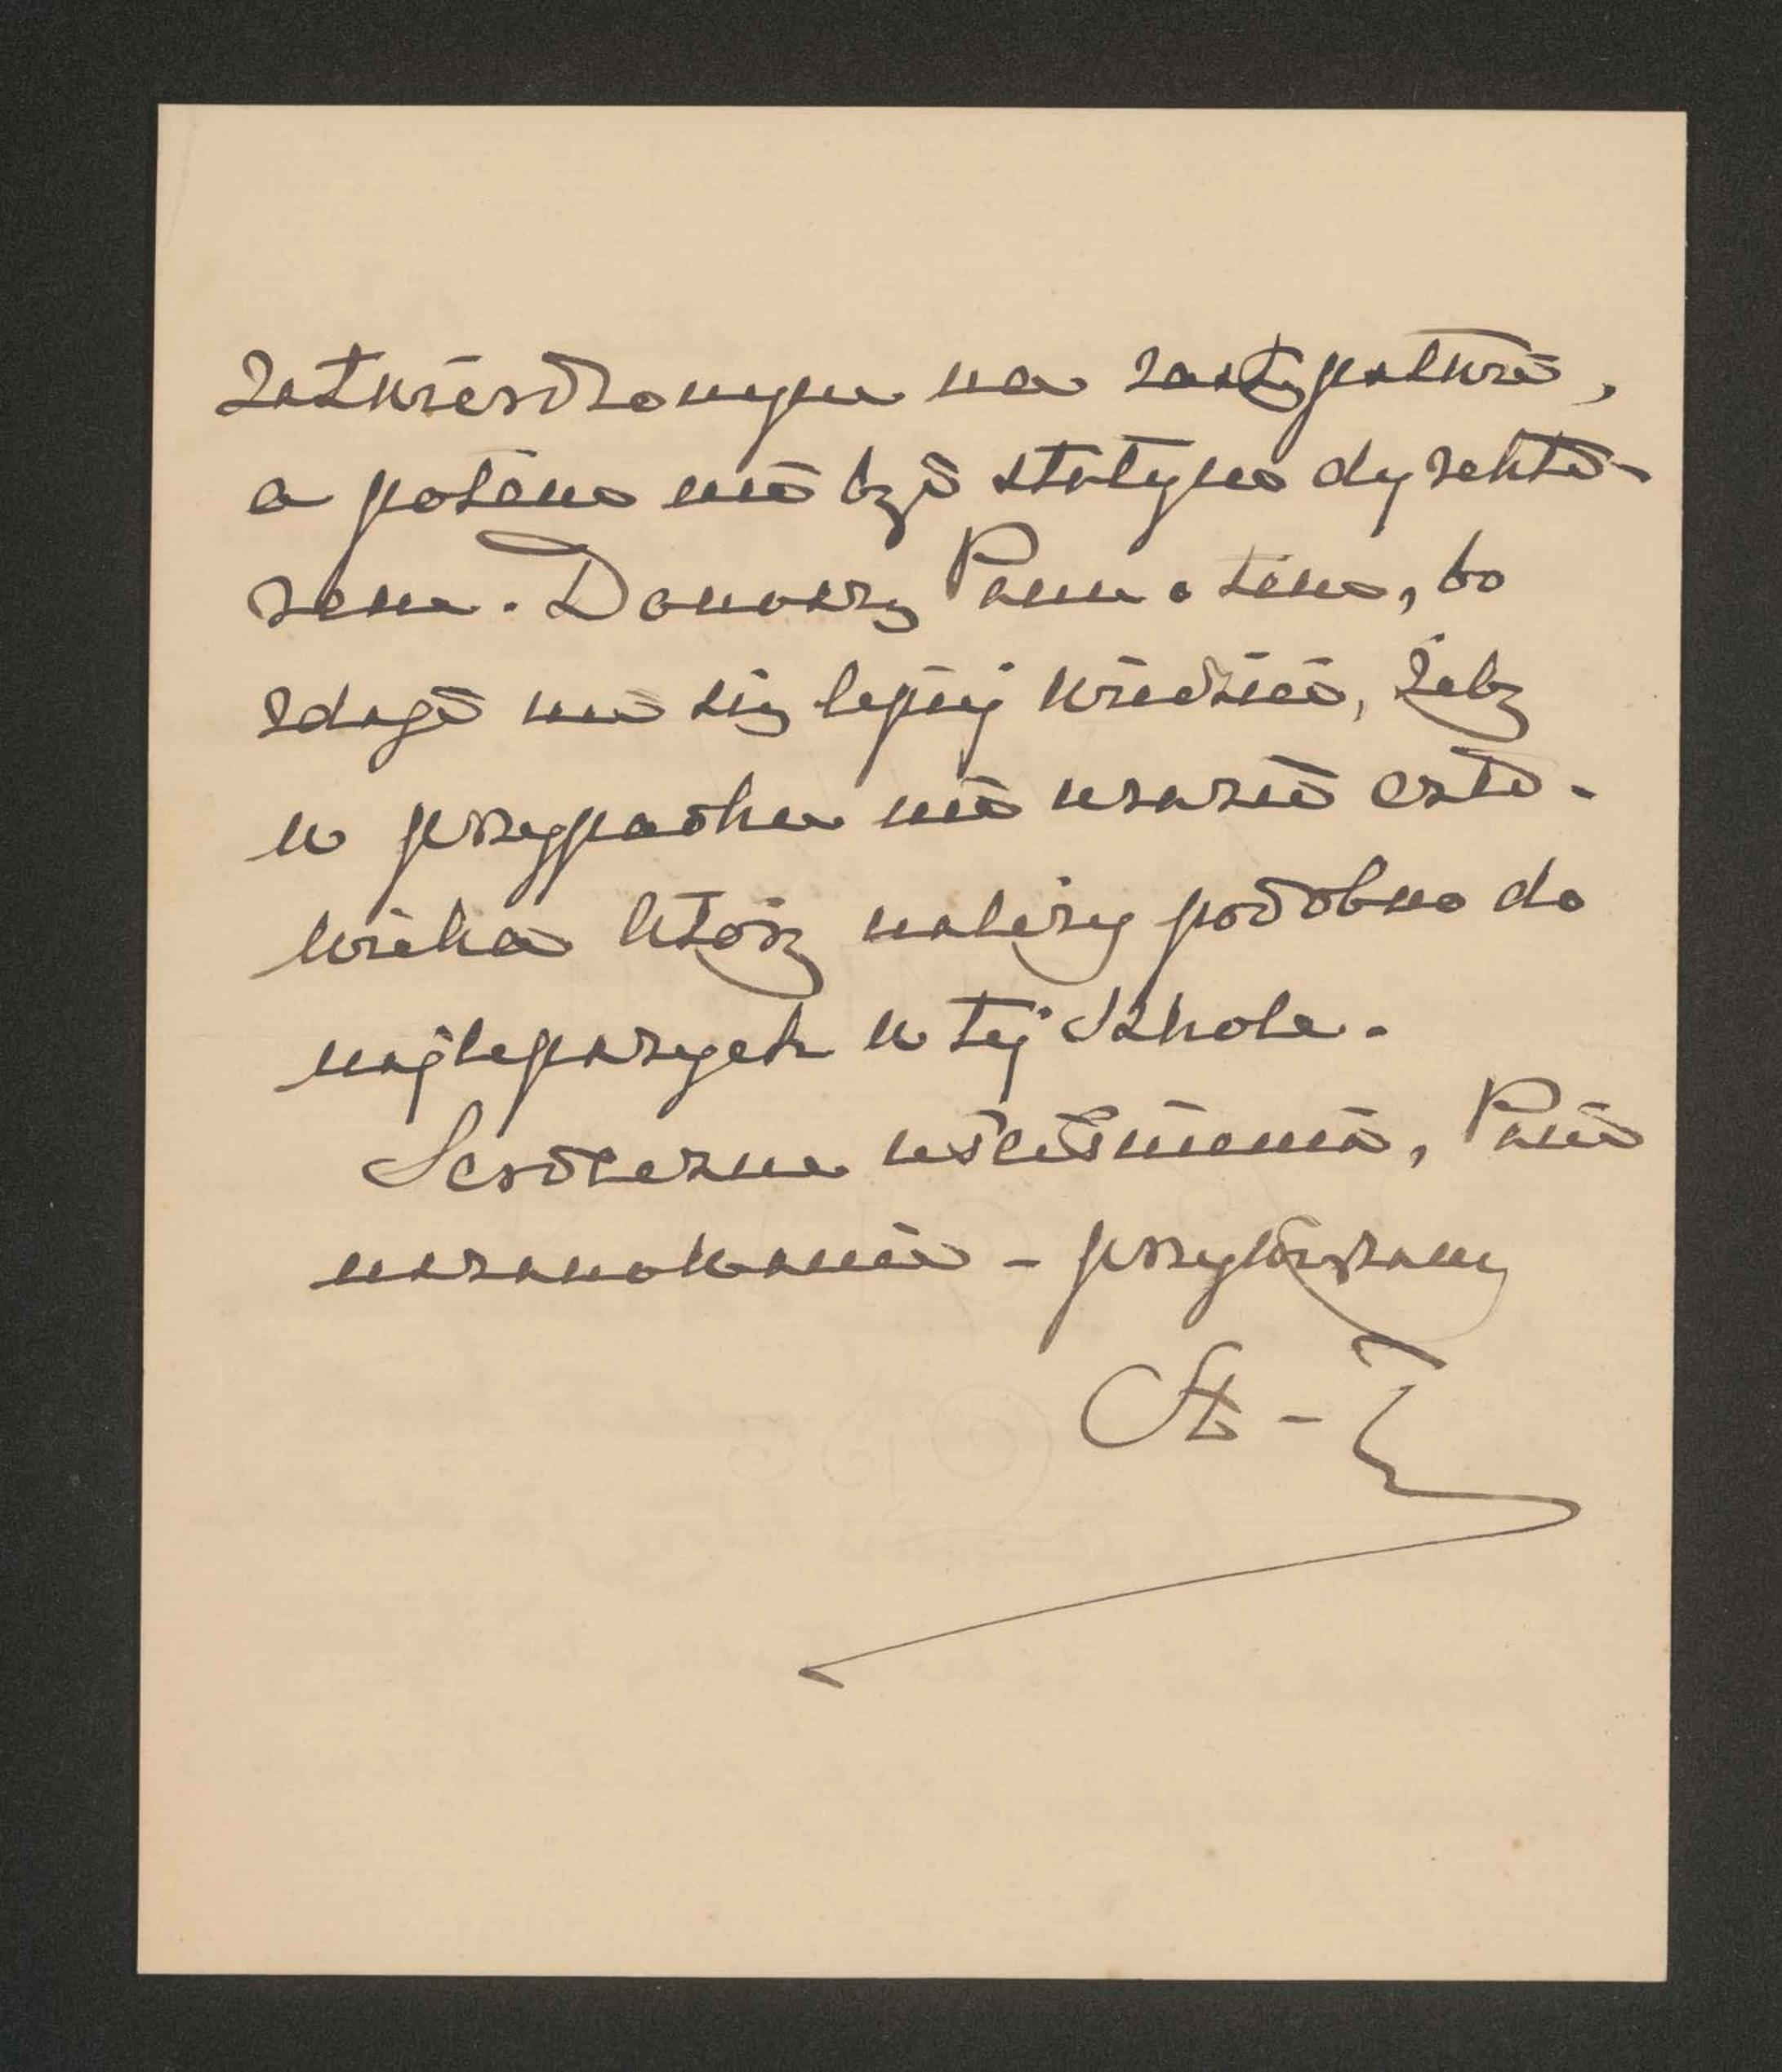 zatwierdzonym na zastępstwie,
a potem nie być stałym dyrekto-
rem. Donoszę Panu o tem, bo
zdaje mi się lepiej wiedzieć, żeby
w przypadku nie urazić czło-
wieka który należy podobno do
najlepszych w tej Szkole.
Serdeczne uściśnienia, Pani
uszanowanie - przywiązany
St -